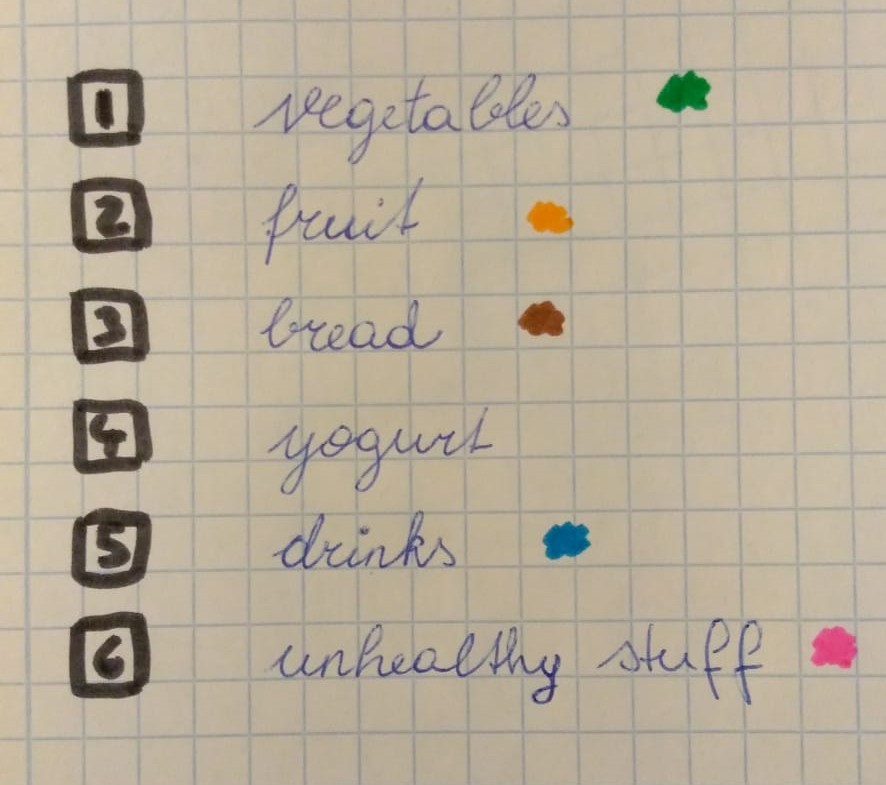 1 vegetables
2 fruit
3 bread
4 yogurt
5 drinks
6 unhealthy stuff